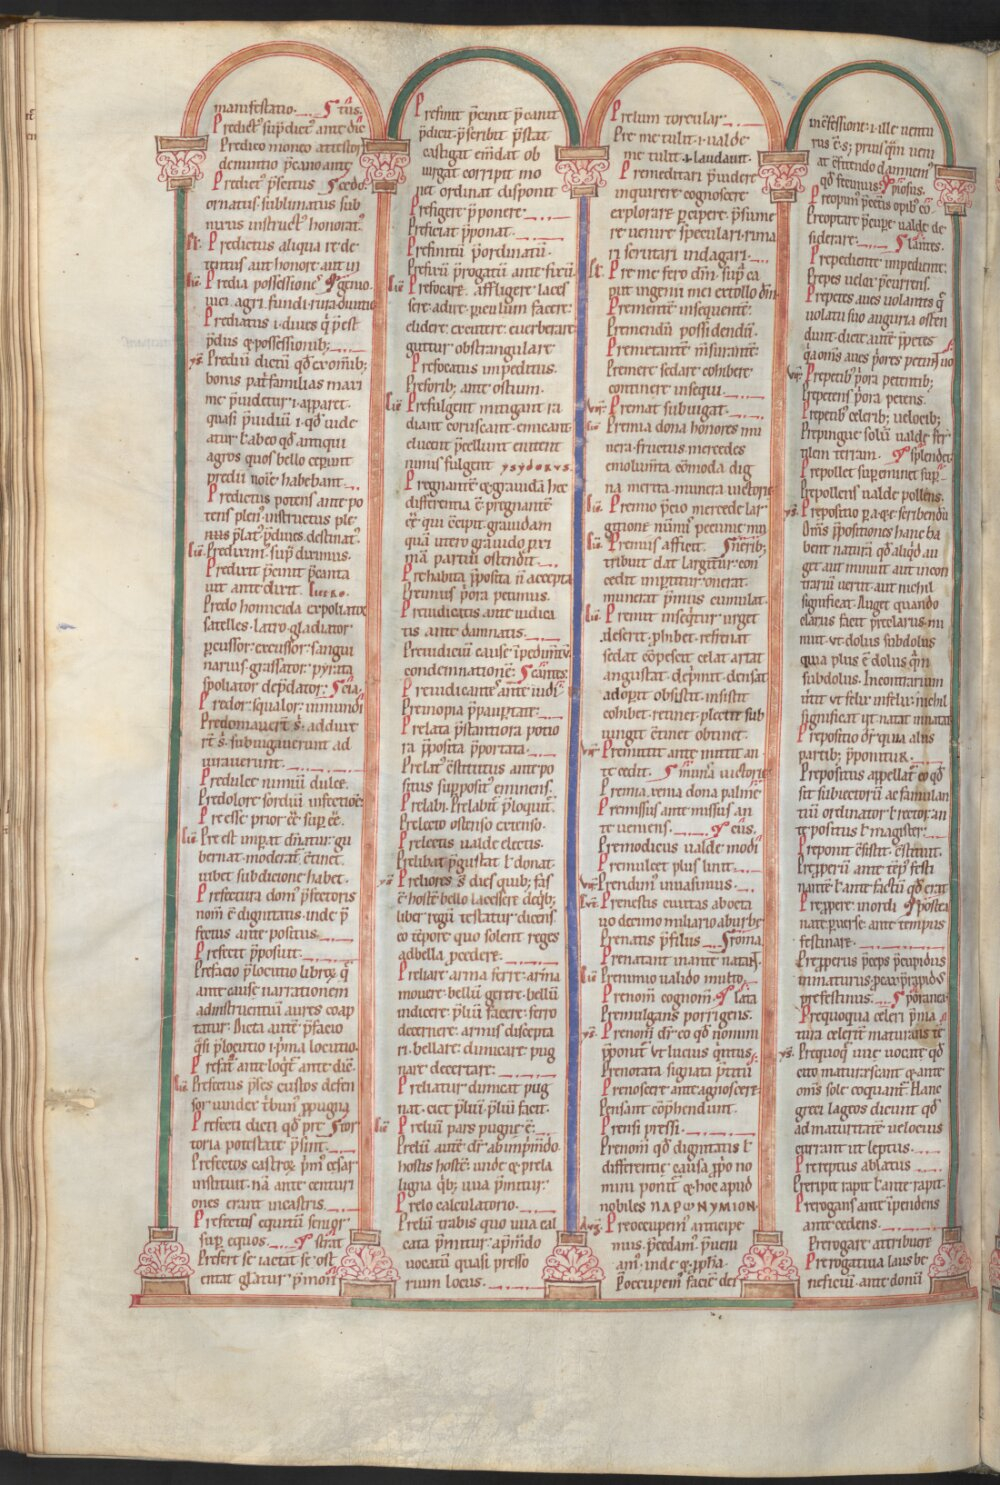 manifestatio. tus.
Predict' sup̄dict' ante dic̄
Predico moneo attestor
denuntio p̄cano ante
Predict' p̄fectus
ornatus sublimatus sub
nixus instruct' honorat'
Predictus aliqua re de
tentus aut honore aut in
Predia possessiones
agri fundi rura
Prediatus i diues q̄ p̄est
p̄diis & possessionib;
Prediū dictū qđ ex omīb;
bonus pat̄familias maxi
me p̄uidetur i apparet.
quasi p̄uidiū i qđ uide
atur ł abeo qđ antiqui
agros quos bello cep̄unt
predii noīe habebant
Predictus potens ante po
tens plen' instructus ple
nius p̄lat' p̄diues destinat'
Prediximī' sup̄ diximus.
Predixit p̄cinit p̄canta
uit ante dixit.
Predo homicida expoliator
satelles latro gladiator
p̄cussor excussor sangui
narius grassator pyrata
spoliator dep̄dator
Predor squalor inmundi
Predomauer̄t s̄ adduxe
rt̄ s̄ subiugauerunt ad
iurauerunt.
Predulce nimiū dulce.
Predolore sordiū infectione
Preesse prior eē sup̄ eē.
Pre est imp̄at dn̄atur gu
bernat moderat' c̄tinet
iubet subditione habet.
Prefectura dom' p̄fectoris
nom̄ ē dignitatis inde p̄
fectus ante positus.
Prefecit p̄posuit.
Prefacio p̄locutio libroꝝ q̄
ante cause narrationem
adinstruentiū aures coap
tatur. Dicta autē p̄facio
q̄si p̄locutio i p̄ma locutio.
Prefat' ante loq̄t' ante dic̄.
Prefectus p̄les custos defen
sor uindex t̄bun' p̄pugna
Prefecti dicti qđ pre
toria potestate p̄sint.
Prefectos castroꝝ p̄m' cesar
instituit. nā ante centuri
ones erant incastris.
Prefectus equitū senior
sup̄ equos.
Prefert se iactat se ost
entat glatur p̄monst
Prefinit p̄ciuit p̄canit
p̄dicit p̄scribit p̄stat
castigat em̄dat ob
iurgat corripit mo
net ordinat disponit
Prefigere p̄ponere.
Preficiat p̄ponat.
Prefinitū p̄ordinatū.
Prefixū p̄rogatū ante fixū
Prefocare affligere laces
sere adire p̄iculum facere
elidere excutere euerberare
guttur obstrangulare
Prefocatus impeditus.
Preforib; ante ostium.
Prefulgent mitigant ra
diant coruscant emicant
elucent p̄cellunt enitent
nimis fulgent ysydorus.
Pregnantē & grauidā hec
differentia ē prignantē
eē qui c̄cipit grauidam
quā utero grauido p̄xi
mā partui ostendit.
Prehabita p̄posita ñ accepta
Preimus p̄ora petimus.
Preiudicatus ante iudica
tis ante damnatis.
Preiudiciū cause īpedim̄tū
condemnationē.
Preiudicant' ante iudi
Preinopia p̄paup̄tate.
Prelata p̄stantiora potio
ra p̄posita p̄portata.
Prelat' c̄stitutus ante po
situs sup̄posit' eminens.
Prelabi Prelabit̄ p̄loquit̄.
Prelecto ostenso extenso.
Prelectis ualde electis.
Prelibat p̄gustat ł donat.
Preliores s̄ dies quib; fas
ē hostē bello lacessere deq̄b;
liber regū testatur dicens
eo tēpore quo solent reges
adbella p̄cedere.
Preliare arma ferre arma
mouere bellū gerere bellū
indicere p̄liū facere ferro
decernere armis discepta
ri bellare dimicare pug
nare decertare.
Preliatur dimicat pug
nat. ciet p̄liū p̄liū facit.
Preliū pars pugne ē.
Preliū autē dr̄ ab inp̄mdo
hostis hostē unde & prela
ligna q̄b; uua p̄mitur.
Prelo calculatorio.
Prelū trabis quo uua cal
cata p̄mitur ap̄mdo
uocatū quasi presso
rium locus.
Prelum torcular.
Pre me tulit i ualde
me tulit i laudauit.
Premeditari p̄uidere
inquirere cognoscere
explorare p̄cipere p̄sume
re uenire speculari rima
ri scrutari indagari.
Pre me fero dm̄ sup̄ ca
put ingenii mei extollo dm̄
Prementē insequentē.
Premendū possidendū.
Premetantē m̄surantē.
Premere sedare cohibere
continere insequi.
Premat subiugat.
Premia dona honores mu
nera fructus mercedes
emolum̄ta cōmoda dig
na merita munera uictorie
Premio p̄cio mercede lar
gitione num̄i pecunie mu
Premiis afficit.
tribuit dat largitur con
cedit imp̄titur onerat
munerat p̄miis cumulat.
Premit inseq̄tur urget
deserit p̄hibet refrenat
sedat cōpescit celat artat
angustat dep̄mit densat
adop̄it obsistit insistit
cohibet retinet plectit sub
iungit c̄tinet obtinet.
Premittit ante mittit an
te cedit.
Premia xenia dona palme
Premissus ante missus an
te ueniens.
Premodicus ualde modi
Premulcet plus linit.
Prendim' inuasimus.
Prenestus ciuitas aboeta
uo decimo miliario aburbe
Prenatus p̄filius
Prenatant inante natant
Prenimio ualido multo.
Prenom̄ cognom̄.
Premulgans porrigens.
Prenom̄ dr̄ eo qđ nomini
p̄ponit̄ ut lucius quintus.
Prenotata signata p̄titū
Prenoscere ante agnoscere
Pensant cōp̄hendunt.
Prensi pressi.
Prenom̄ qđ dignitatis ł
differentie causa p̄prio no
mini ponit̄ & hoc apud
nobiles ΠΑΡΩΝΥΜΙΟΝ
Preoccupem' anticipe
mus p̄cedam' p̄ueni
am' inde & p̄pha
P̄occupem' faciē dei
incfessione i ille uentu
rus ē s; priusq̄m ueni
at c̄titendo dampnem'
qđ fecimus.
Preopim' p̄ecus opib' co
Preoptare p̄cupe ualde de
siderare.
Prepediente impediente.
Prepes uelox p̄currens.
Prepetes aues uolantes q̄
uolatu suo auguria osten
dunt dicit autē p̄petes
q̄a om̄s aues p̄iores petunt uo
Prepetib' p̄ora petentib;
Prepetens p̄ora petens.
Prepetib' celerib; uelocib;
Prepingue solū ualde fer
tilem terram.
Prepollet sup̄eminet sup̄
Prepollens ualde pollens.
Prepositio p a & e scribendū
Om̄s p̄positiones hanc ha
bent naturā qđ aliqđ au
get aut minuit aut incon
trariū uertit aut nichil
significat. Auget quando
clarus facit p̄clarus. mi
nuit ut dolus subdolus
quia plus ē dolus q̄m
subdolus. Incontrarium
u̇tit ut felix infelix. nichil
significat ut natat innatat
Prepositio dr̄ quia aliis
partib; p̄ponitur.
Prepositus appellat̄ eo qđ
sit subiectorū ac famulan
tiū ordinator ł rector an
te positus ł magister.
Preponit c̄sistit c̄stituit.
Prep̄perū ante tēp' festi
nantē ł ante factū qđ erat
Prep̄pere inordi
nate p̄uerse ante tempus
festinare.
Prep̄perus p̄ceps p̄cupidus
inmaturus p̄uox p̄rapidus
prefestinus.
Prequoqua celeri p̄ma
tura celerit̄ maturans te
Prequoq̄ uue uocate qđ
cito maturescant & ante
om̄s sole coquant̄. Hanc
greci lageos dicunt qđ
ad maturitatē uelocius
currant ut leptus.
Prereptus ablatus
Preripit rapit ł ante rapit.
Prerogans ante īpendens
ante cedens.
Prerogare attribuere
Prerogatiua laus be
neficiū ante donū